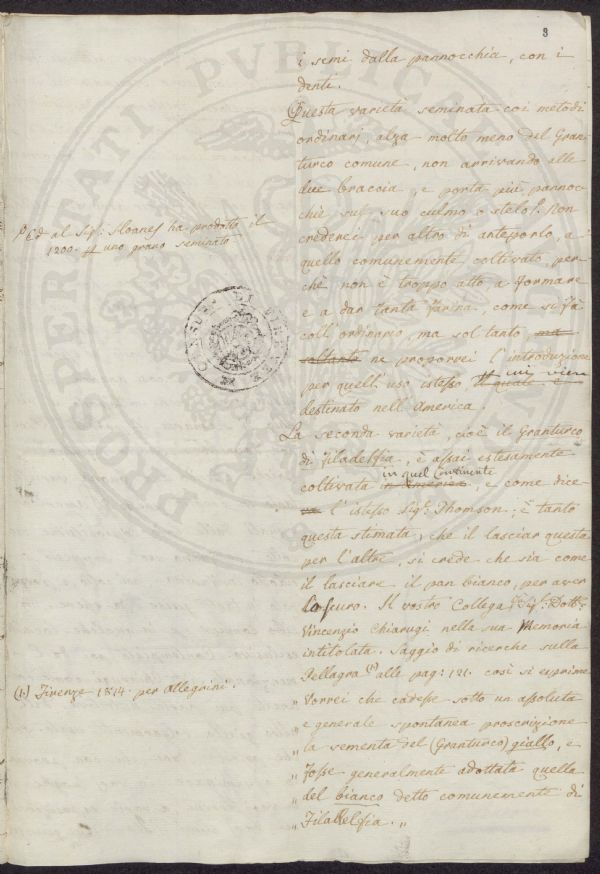 8
i semi dalla pannocchia, con i
denti.
Questa varietà seminata coi metodi
ordinarj, alza molto meno del Gran-
turco comune, non arrivando alle
due braccia, e porta più pannoc-
chie sul suo culmo o stelo. Non
crederei per altro di anteporlo, a
quello comunemente coltivato, per-
chè non è troppo atto a formare
e a dar tanta farina, come si fà
coll'ordinario, ma sol tanto ma
soltanto ne proporrei l'introduzione
per quell'uso istesso al quale è cui vien
destinato nell'America.
La seconda varietà, cioè il Granturco
di Filadelfia, è assai estesamente
coltivata in America in quel Continente, e come dice
va l'istesso Sigr. Thomson, è tanto
questa stimata, che il lasciar questa
per l'altre, si crede che sia come
il lasciare il pan bianco, per aver
lo scuro. Il vostro Collega Sigr. Dottr.
Vincenzio Chiarugi nella sua Memoria
intitolata. Saggio di ricerche sulla
Pellagra (1.) alle pag: 121. così si esprime
Vorrei che cadesse sotto un assoluta
„ e generale spontanea proscrizione
„ la sementa del (Granturco) giallo, e
„ fosse generalmente adottata quella
„ del bianco detto comunemente di
„ Filadelfia. „
Ed al Sigr. Sloanes ha prodotto il
1200. uno grano seminato
(1.) Firenze 1814. per Allegrini.
PROSPERITATI PVBLICAE